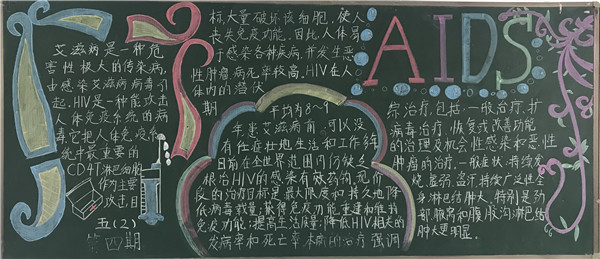 AIDS
艾滋病是一种危
害性极大的传染病,
由感染艾滋病病毒引
起,HIV是一种能攻击
人体免疫系统的病
毒它把人体免疫系
统中最重要的
CD4T淋巴细胞
作为主要
攻击目
标,大量破坏该细胞,使人
丧失免疫功能。因此,人体易
于感染各种疾病,并发生恶
性肿瘤,病死率较高,HIV在人
体内的潜伏
期
平均为8~9
年患艾滋病前,可以没
有任症状地生活和工作多年
目前在全世界范围内仍缺乏
根治HIV的感染有效药物,现阶
段的治疗目标是最大限度和持久地降
低病毒载量;获得免疫功能重建和维持
免疫功能;提高生活质量;降低HIV相关的
发病率和死亡率本病的治疗强调
综治疗,包括:一般治疗、抗
病毒治疗、恢复或改善功能
的治理及机会性感染和恶性
肿瘤的治疗。一般症状:持续发
烧、虚弱、盗汗,持续广泛性全
身淋巴结肿大。特别是颈
部、腋窝和腹股沟淋巴结
肿大更明显。
五(2)
第四期